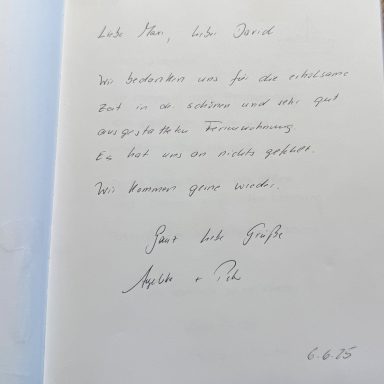 Liebe Mari, lieber David
Wir bedanken uns für die erholsame
Zeit in der schönen und sehr gut
ausgestatteten Ferienwohnung.
Es hat uns an nichts gefehlt.
Wir kommen gerne wieder.
Ganz liebe Grüße
+
6.6.25